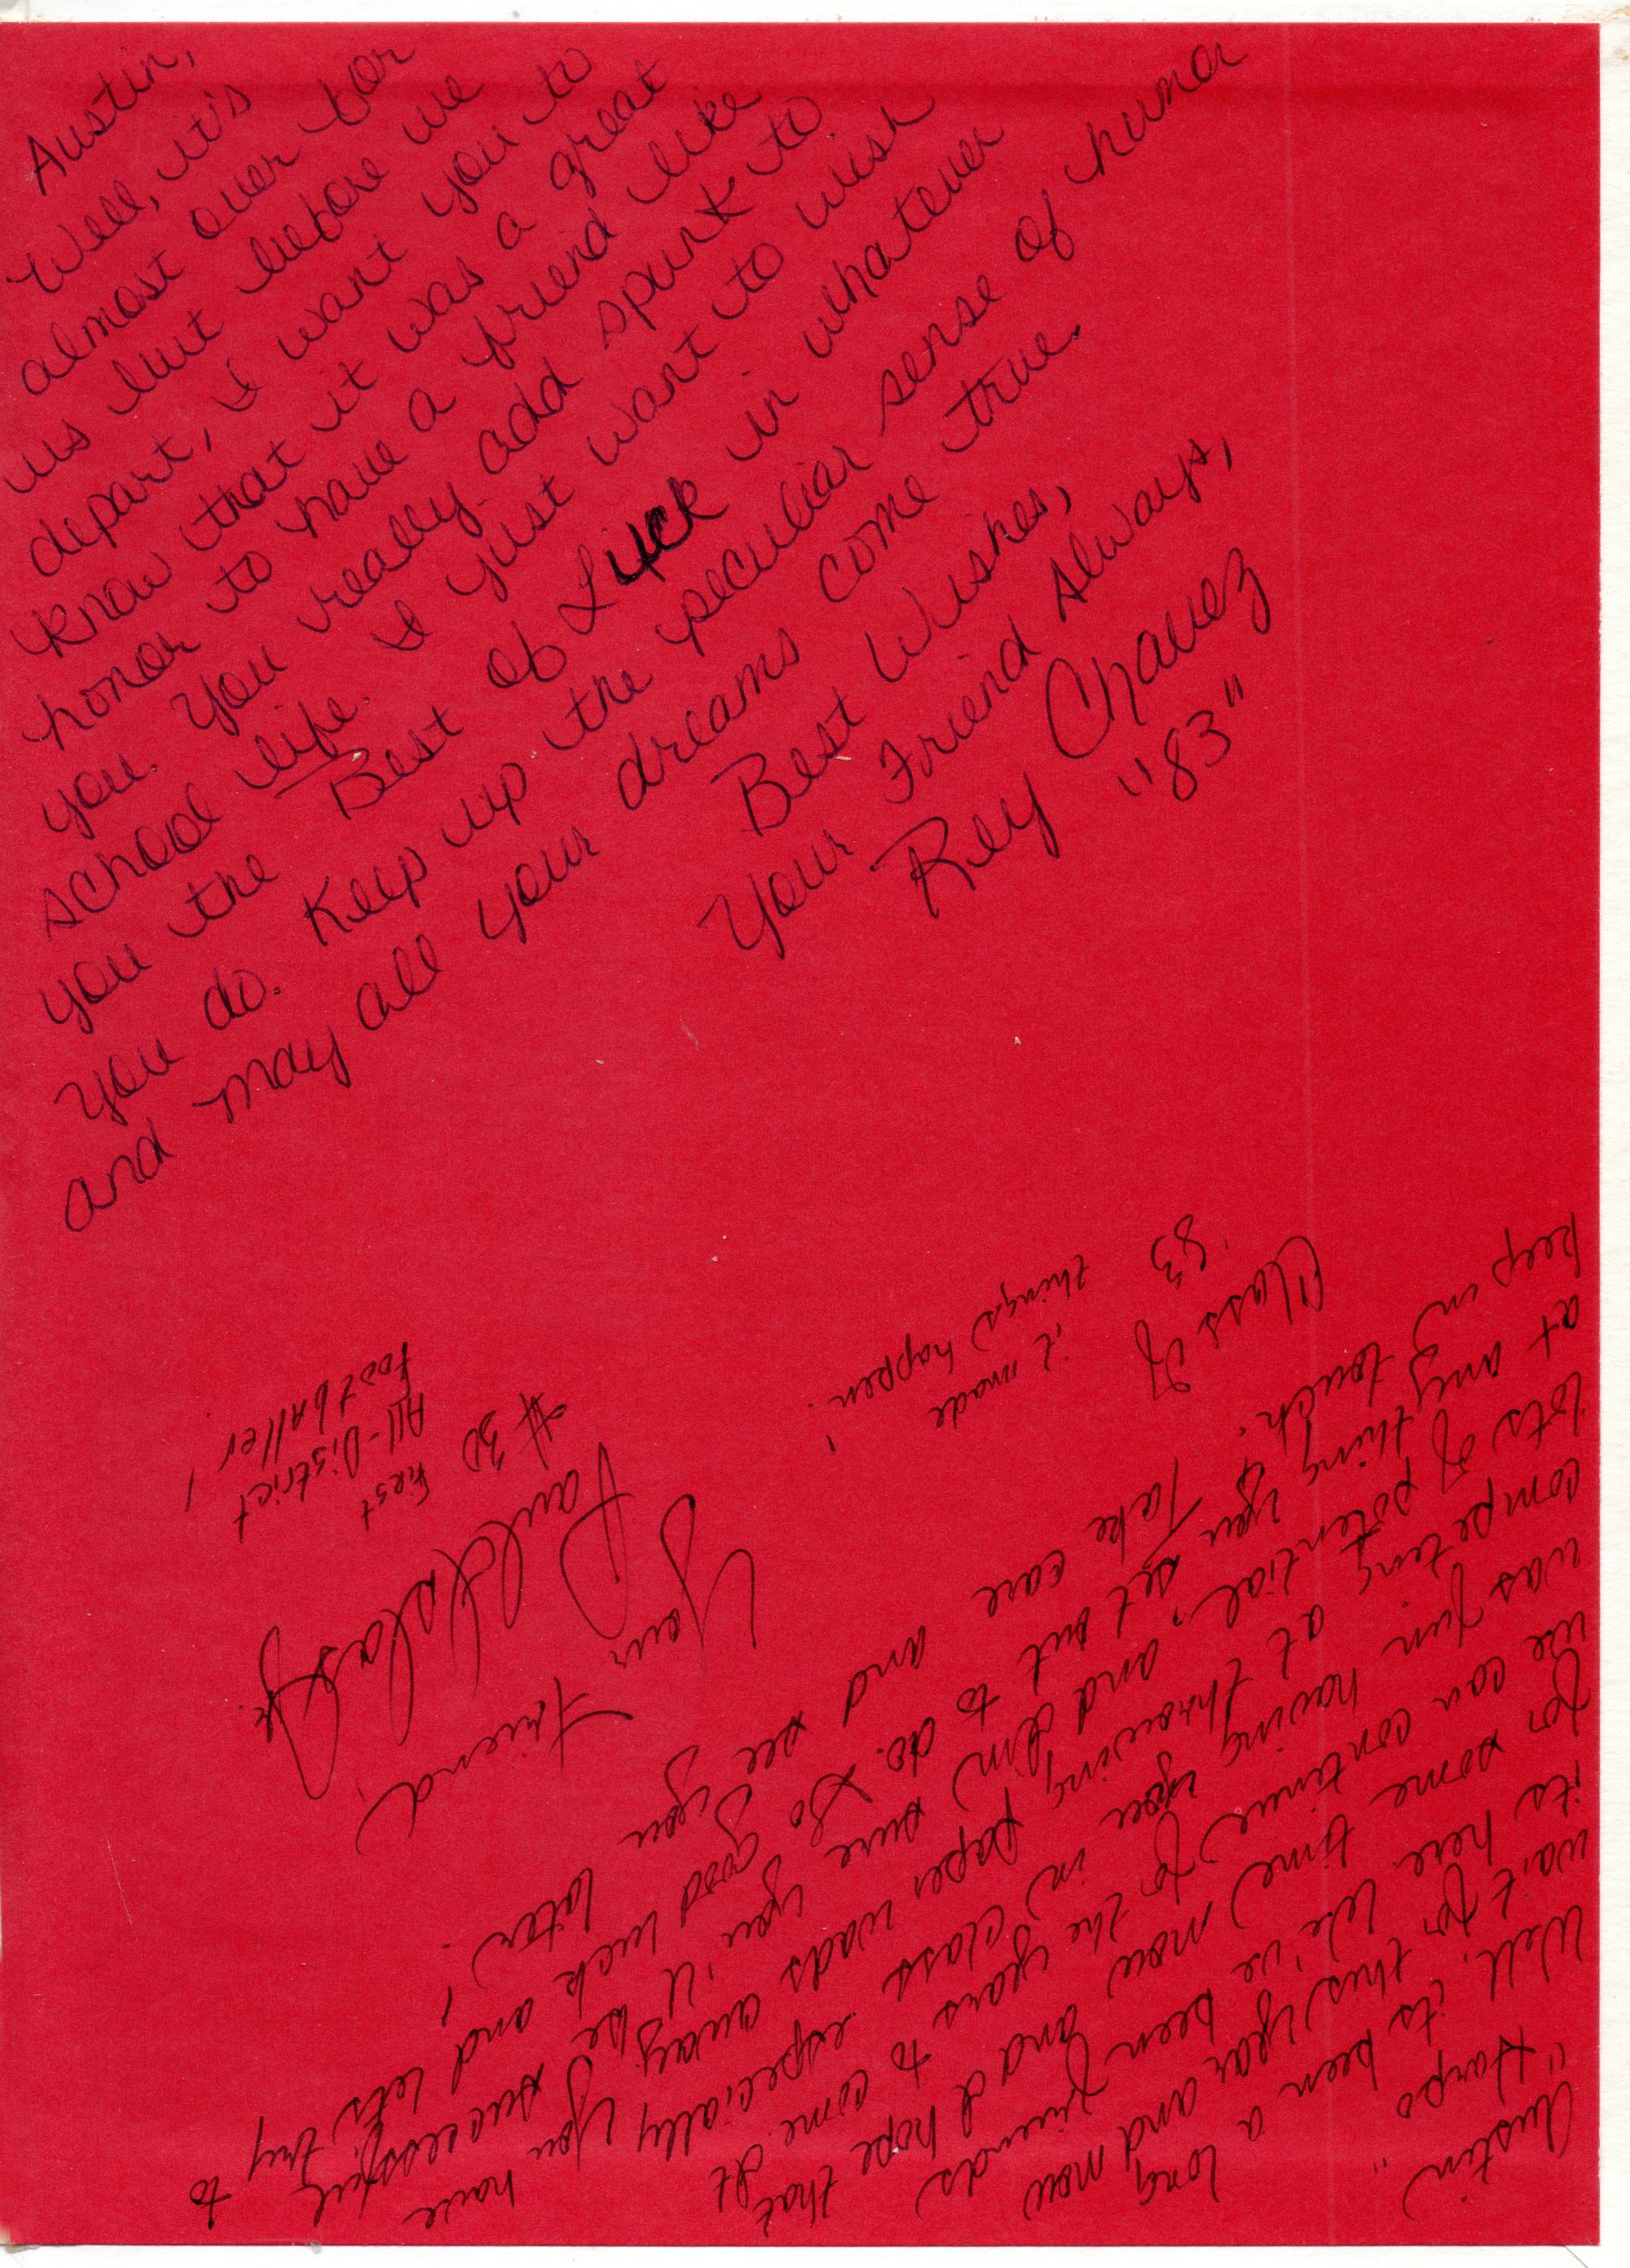 Austin,
Well, it's
almost over for
us but before we
depart, I want you to
know that it was a great
honor to have a friend like
you. You really add spunk to
school life. I just want to wish
you the Best of Luck in whatever
you do. Keep up the peculiar sense of humor
and may all your dreams come true.
Best Wishes,
Your Friend Always,
Rey Chavez
"83"
Austin
"Harpo"
Well, its been a long
wait for this year and now
its here. We've been friends
for some time now and I hope that
we can continue for the years to come. It
was fun having you in class especially
competing at throwing paper wads away. You have
lots of potential, and I'm sure you'll be successful
at any thing you set out to do. So good luck and lets try to
keep in touch. Take care and see you later!
Your Friend,
Paul Jr.
#30
First
All-District
Footballer!
Class of '83
it made
things happen!